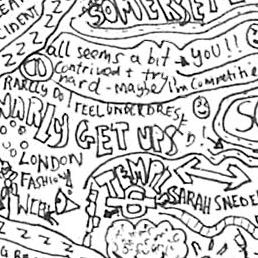 SOMERSET
all seems a bit → YOU!!
contrived + try
hard - maybe I'm competitive
RARELY DO I FEEL UNDERDRESSED!
GET UPS
LONDON
FASHION
WEEK
TEMPLE
SARAH SNEDE
Z Z Z Z